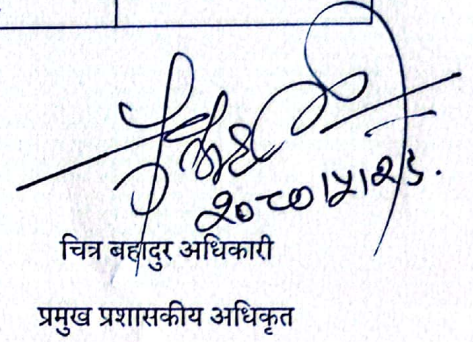 २०८०।५।२३.
चित्र बहादुर अधिकारी
प्रमुख प्रशासकीय अधिकृत